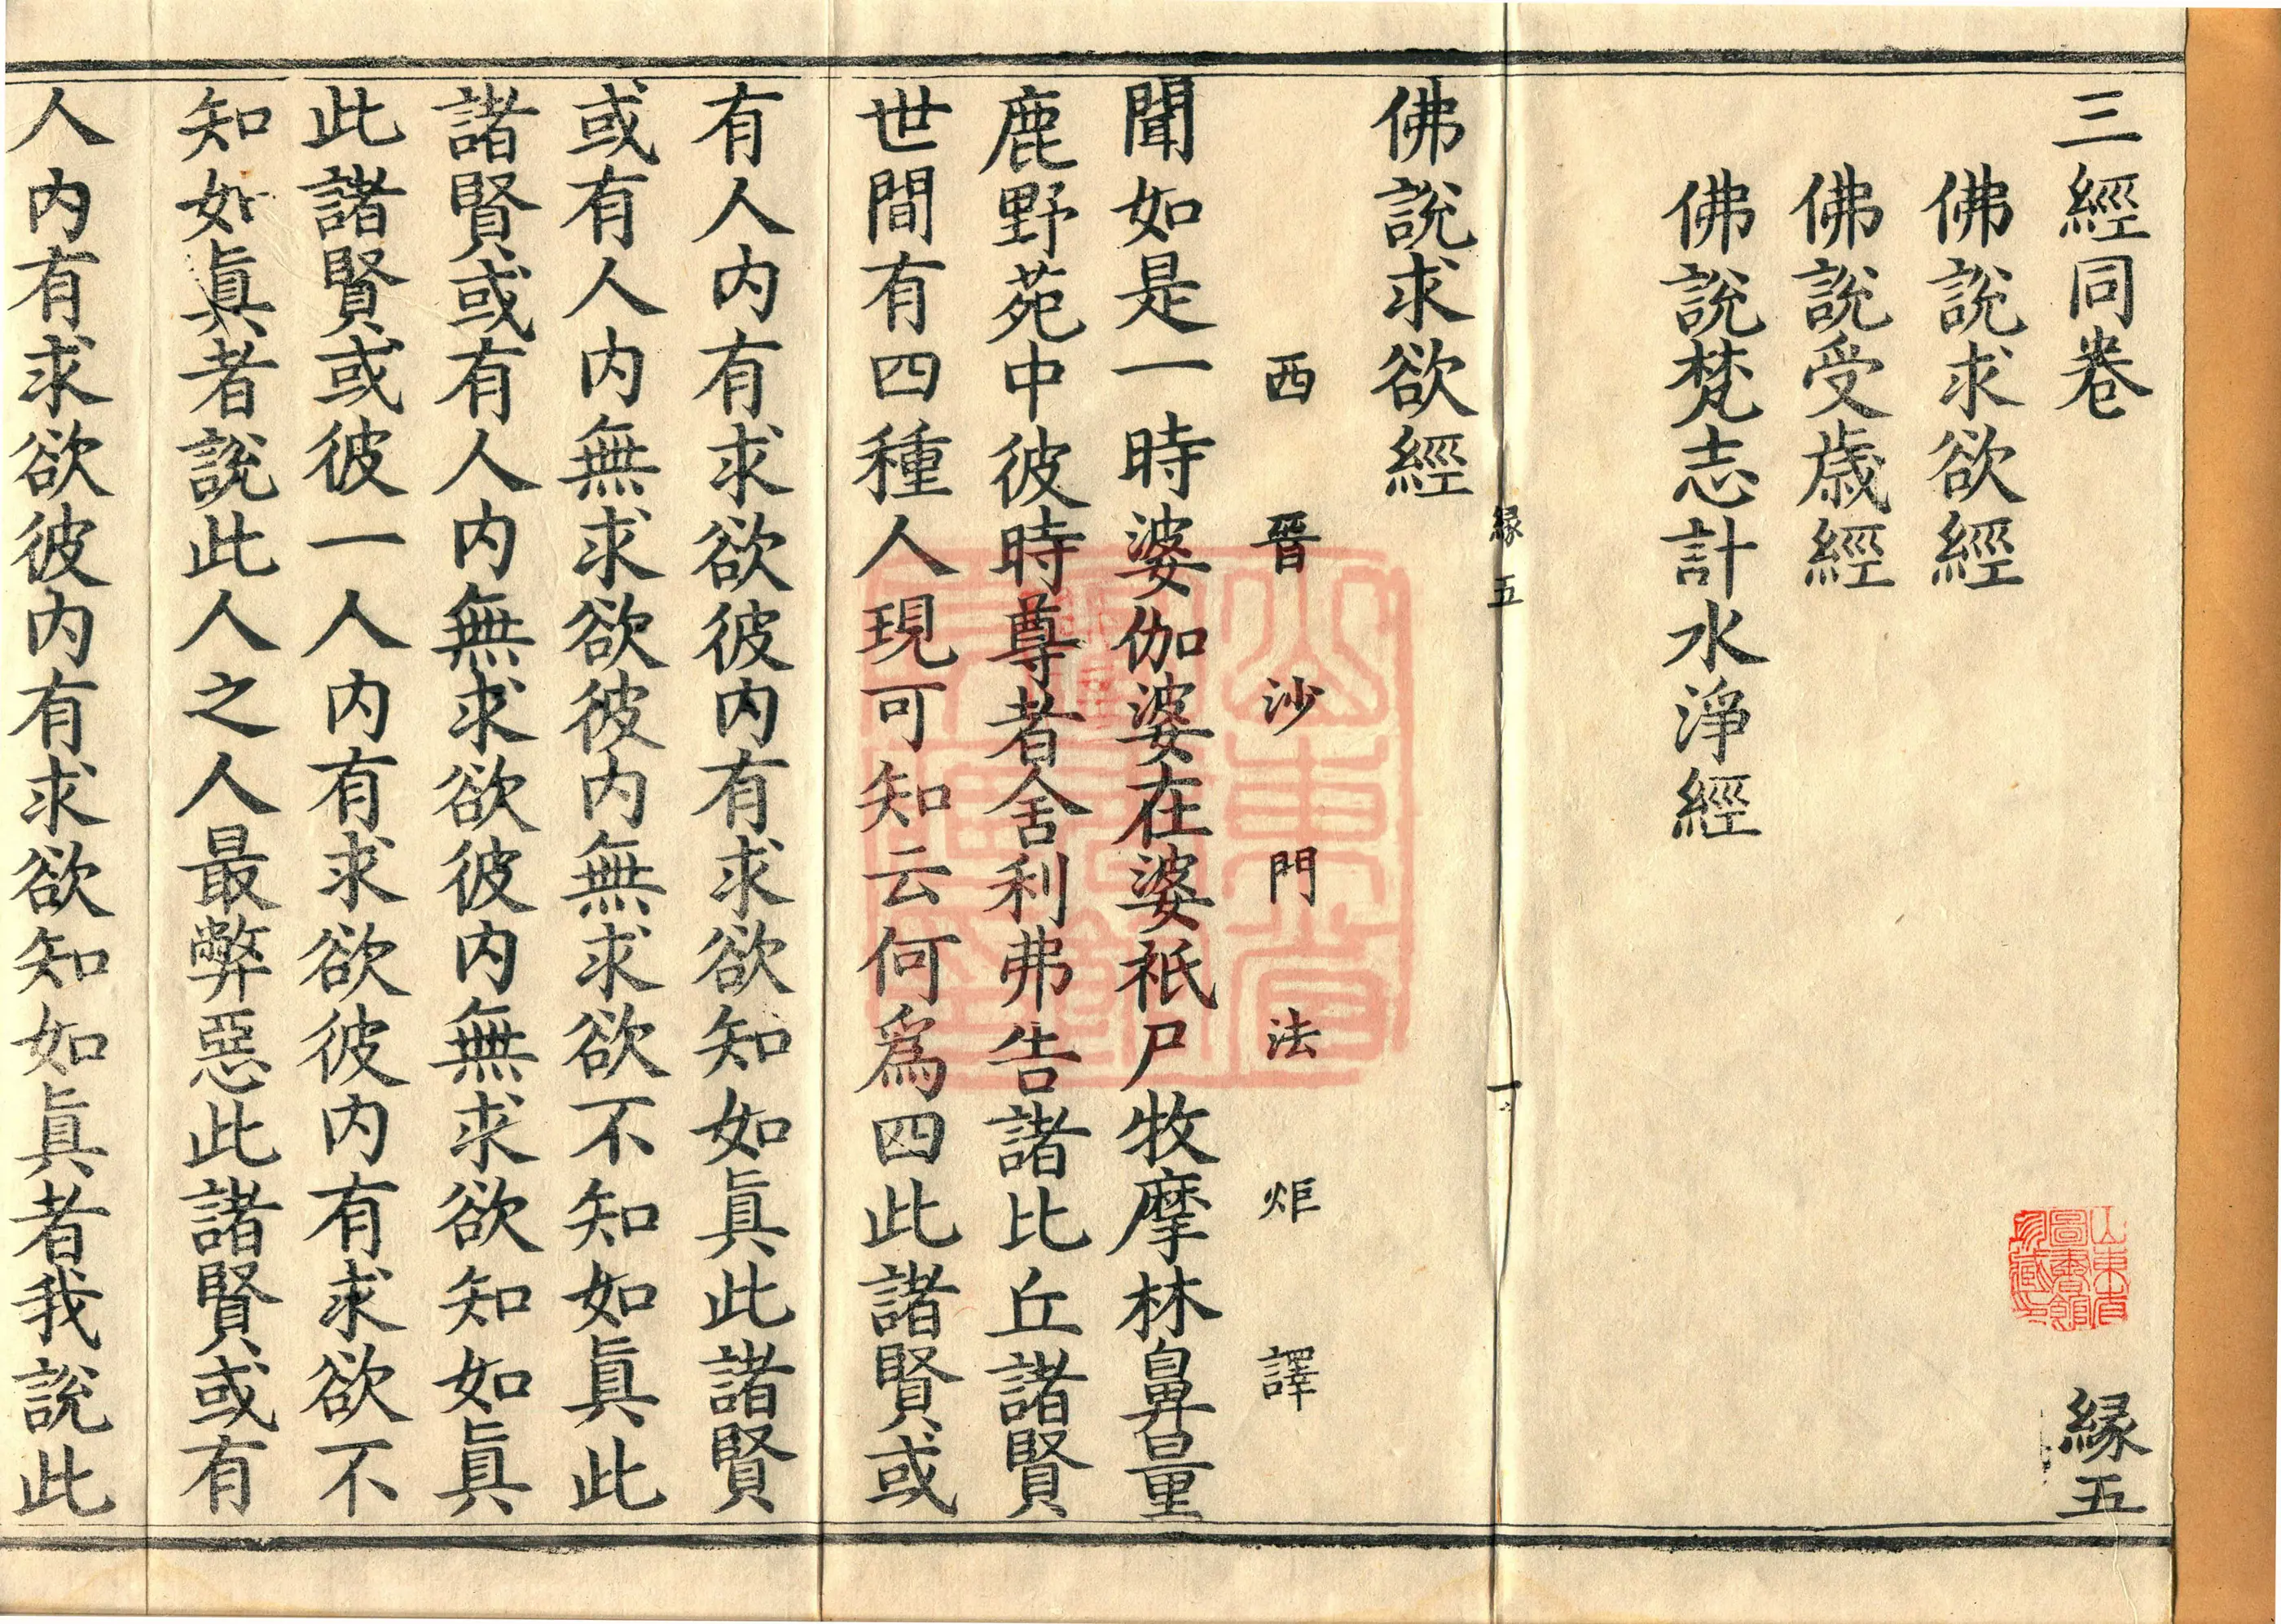 三經同卷 緣五
佛說求欲經
佛說受歲經
佛說梵志計水淨經
緣五 一
佛說求欲經
西晉沙門法炬譯
聞如是一時婆伽婆在婆祇尸牧摩林鼻量
鹿野苑中彼時尊者舍利弗告諸比丘諸賢
世間有四種人現可知云何爲四此諸賢或
有人内有求欲彼内有求欲知如眞此諸賢
或有人内無求欲彼内無求欲不知如眞此
諸賢或有人内無求欲彼内無求欲知如眞
此諸賢或彼一人内有求欲彼内有求欲不
知如眞者說此人之人最弊惡此諸賢或有
人内有求欲彼内有求欲知如眞者我說此
山東省圖書館